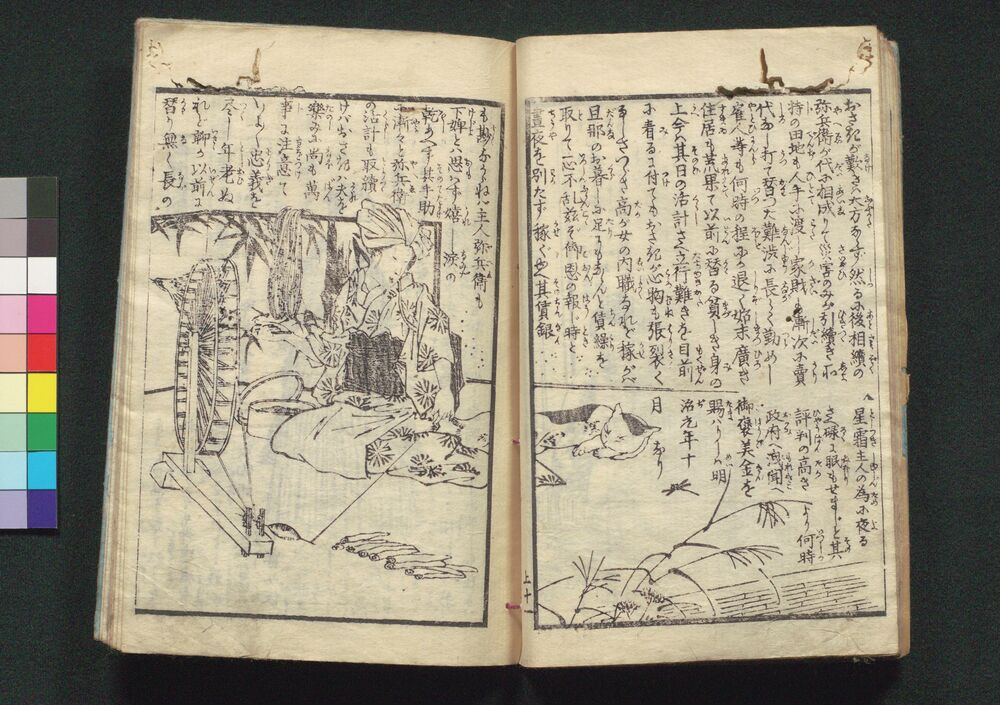 おさだが歎き大方ならず然るに後相續の
弥兵衛が代に相成りても災害のみが引續き
持の田地も人手に渡し家財も漸次に賣
代なし打て替つた難渋に長く勤めし
雇人等も何時の程にか退く始末廣き
住居も荒果て以前に替る貧しき身の
上今は其日の活計さへ立行難きを目前
に看るに付てもおさだが心物も張裂く
旦那のお暮しに足にもならんと賃繰を
取りて一忘不乱茲ぞ御恩の報じ時と
晝夜を別たず稼ぐ也其賃銀
も尠なからねば主人弥兵衛も
下婢とは思はず嬉し涙の
乾あへず其手助
にて漸々と弥兵衛
の活計も取續
けばおさだは夫を
樂みに尚も萬
事に注意て
いよいよ忠義を
尽し年老ぬ
れど聊か以前に
替り無く長の
星霜主人の為に夜る
さへ碌に眠もせまじと其
評判の高さより何時
政府へ海聞へ
御褒美金を
賜はりしは明
治九年十
月なり
上十一